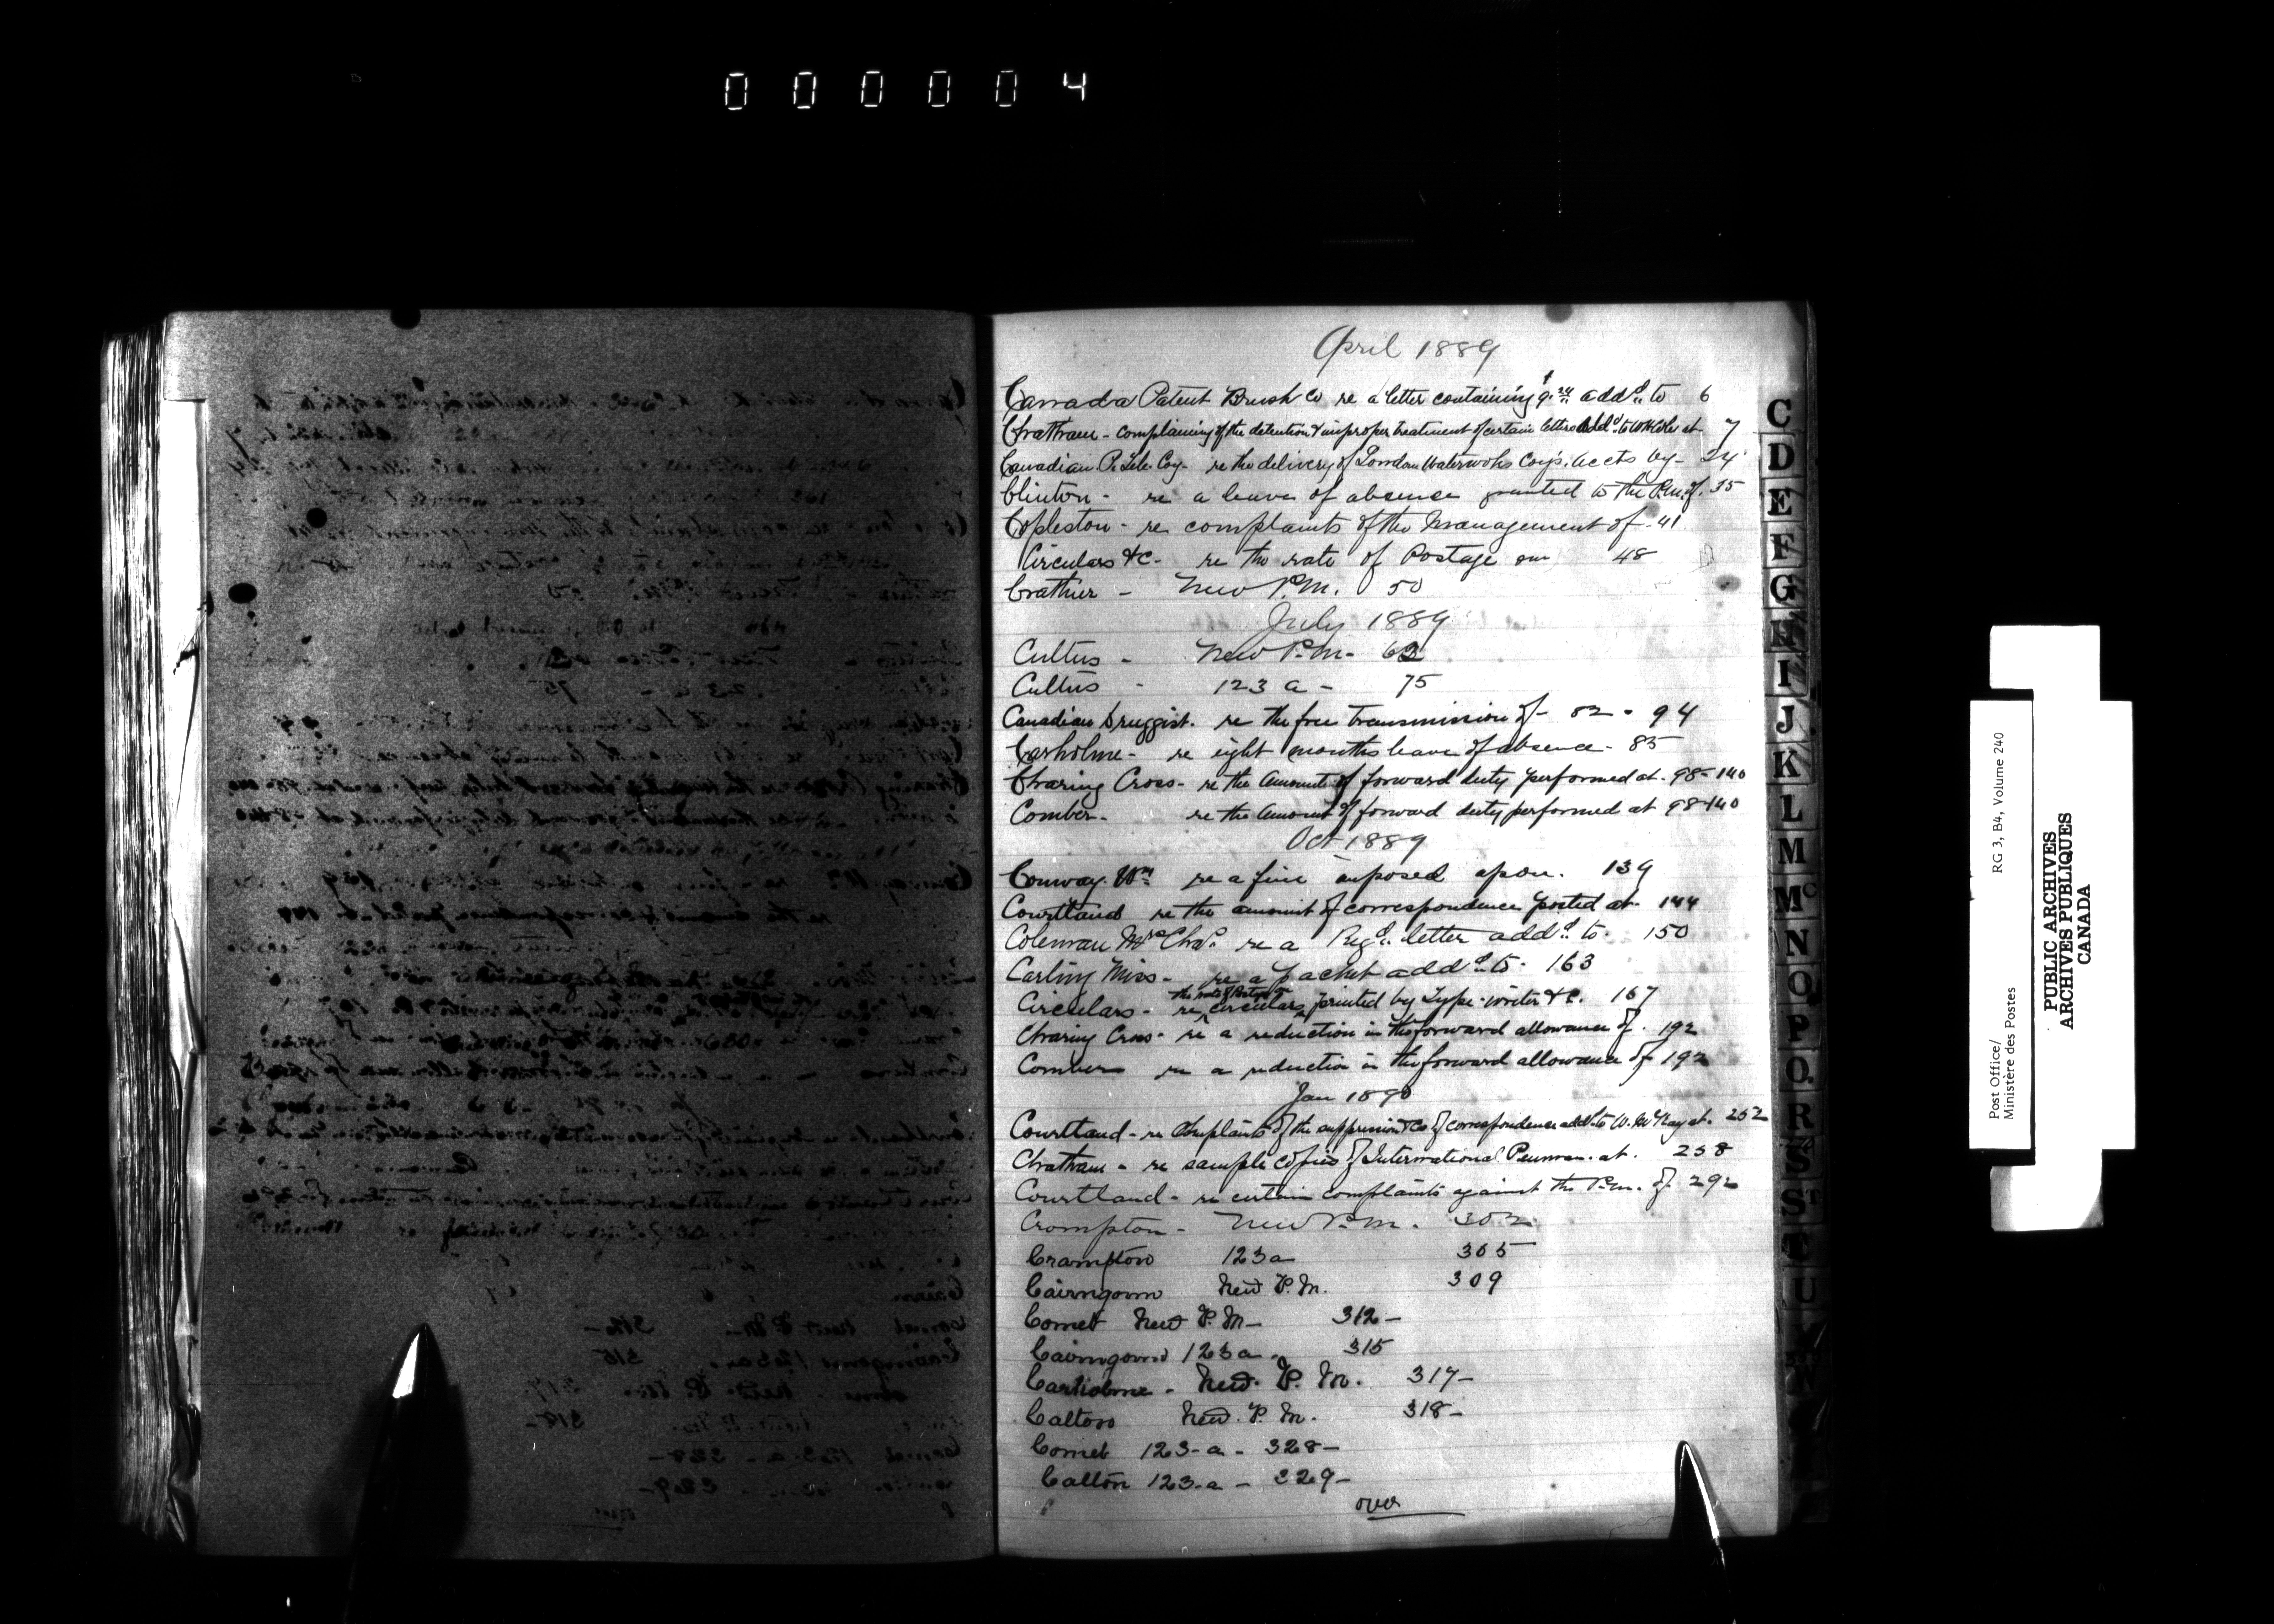 000004
April 1889
Canada Patent Brush Co re a letter containing $9.24 addd to 6
Chatham - complaining of the detention & improper treatment of certain letters addd to at 7
Canadian P. Tele. Coy - re the delivery of London Waterworks Coy's. Accts by - 24
Clinton - re a leave of absence granted to the P.M. of. 35
Copleston - re complaints of the management of - 41
Circulars &c - re the rate of Postage on 48
Crathier - New P.M. 50
July 1889
Cultus - New P.M - 63
Cultus - 123 a - 75
Canadian Druggist. re the free transmission of - 82 - 94
Carholme - re eight months leave of absence - 85
Charing Cross - re the amount of forward duty performed at - 98-140
Comber - re the amount of forward duty performed at 98-140
Oct 1889
Conway. Wm re a fine imposed upon. 139
Courtland re the amount of correspondence posted at 144
Coleman Mrs Chas. re a Regd. letter addd to. 150
Carling Miss - re a packet addd to - 163
Circulars - re the rate of Postage on circulars printed by Type-writer &c. 167
Charing Cross - re a reduction in the forward allowance of. 192
Comber re a reduction in the forward allowance of 192
Jan 1890
Courtland - re complaints of the suppression &c of correspondence addd to W. McKay at. 252
Chatham - re sample copies of International Penman. at. 258
Courtland - re certain complaints against the P.M. of 292
Crompton - New P.M. 302
Crampton 123 a 305
Cairngorm New P.M. 309
Comet New P.M - 312 -
Cairngorm 123 a - 315
Carholme - New. P.M. 317 -
Calton New. P.M. 318 -
Comet 123 - a - 328 -
Calton 123 - a - 329 -
over
C
D
E
F
G
H
I
J
K
L
M
Mc
N
O
P
Q
R
S
St
T
U
Post Office/
Ministère des Postes
RG 3, B4, Volume 240
PUBLIC ARCHIVES
ARCHIVES PUBLIQUES
CANADA